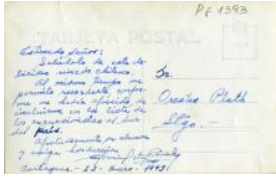 Pg 1393
TARJETA POSTAL
Estimado señor:
Salúdole de este de-
licioso rincón chileno.
Al mismo tiempo me
permito recordarle confor-
me me había ofrecido de
incluirme en la lista de
los excursionistas al Sur
del país.
Afectuosamente su alumno
y amigo
Cartagena - 23 - Enero - 1943.
Sr.
Orestes Plath
Stgo. -